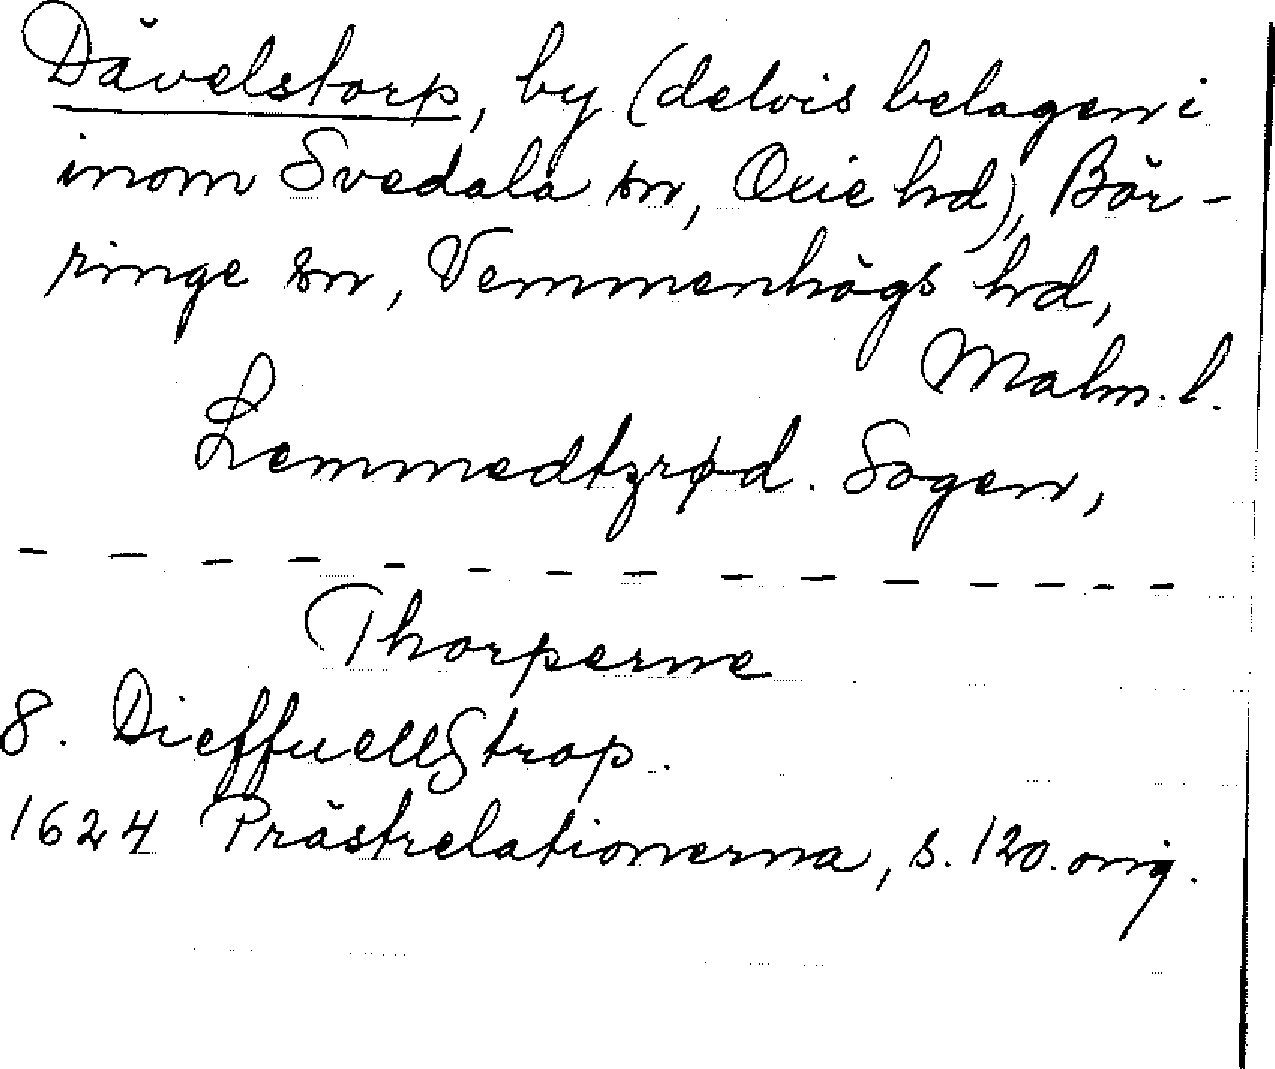 Dävelstorp, by (delvis belagen i
inom Svedala sn, Oxie hd), Bör-
ringe sn, Vemmenhögs hd,
Malm. l.
Lemmedtzrød. Sogen,
- - - - - - - - - - - - - -
Thorperne
8. Dieffuellstrop.
1624 Prästrelationerna, s. 120. orig.